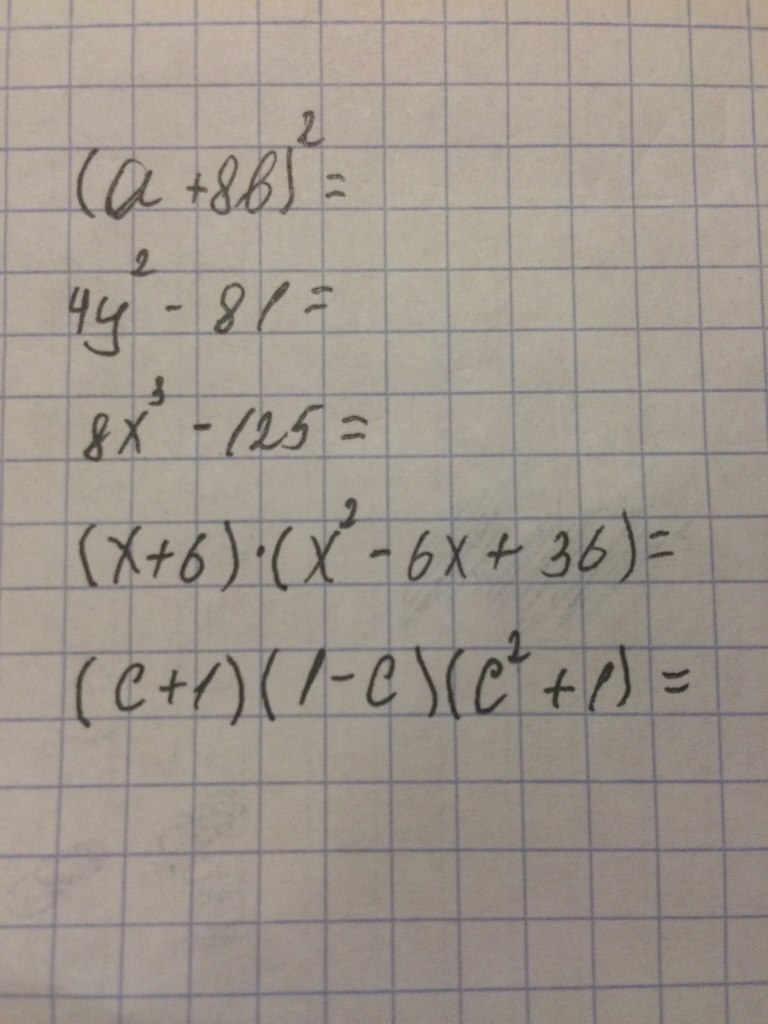 (a + 8b)² =
4y² - 81 =
8x³ - 125 =
(x + 6) · (x² - 6x + 36) =
(c + 1)(1 - c)(c² + 1) =